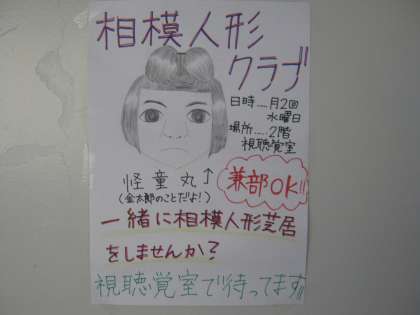 相模人形
クラブ
日時……月2回
水曜日
場所……2階
視聴覚室
怪童丸↑
(金太郎のことだよ!)
兼部OK!!
一緒に相模人形芝居
をしませんか?
視聴覚室で待ってます!!